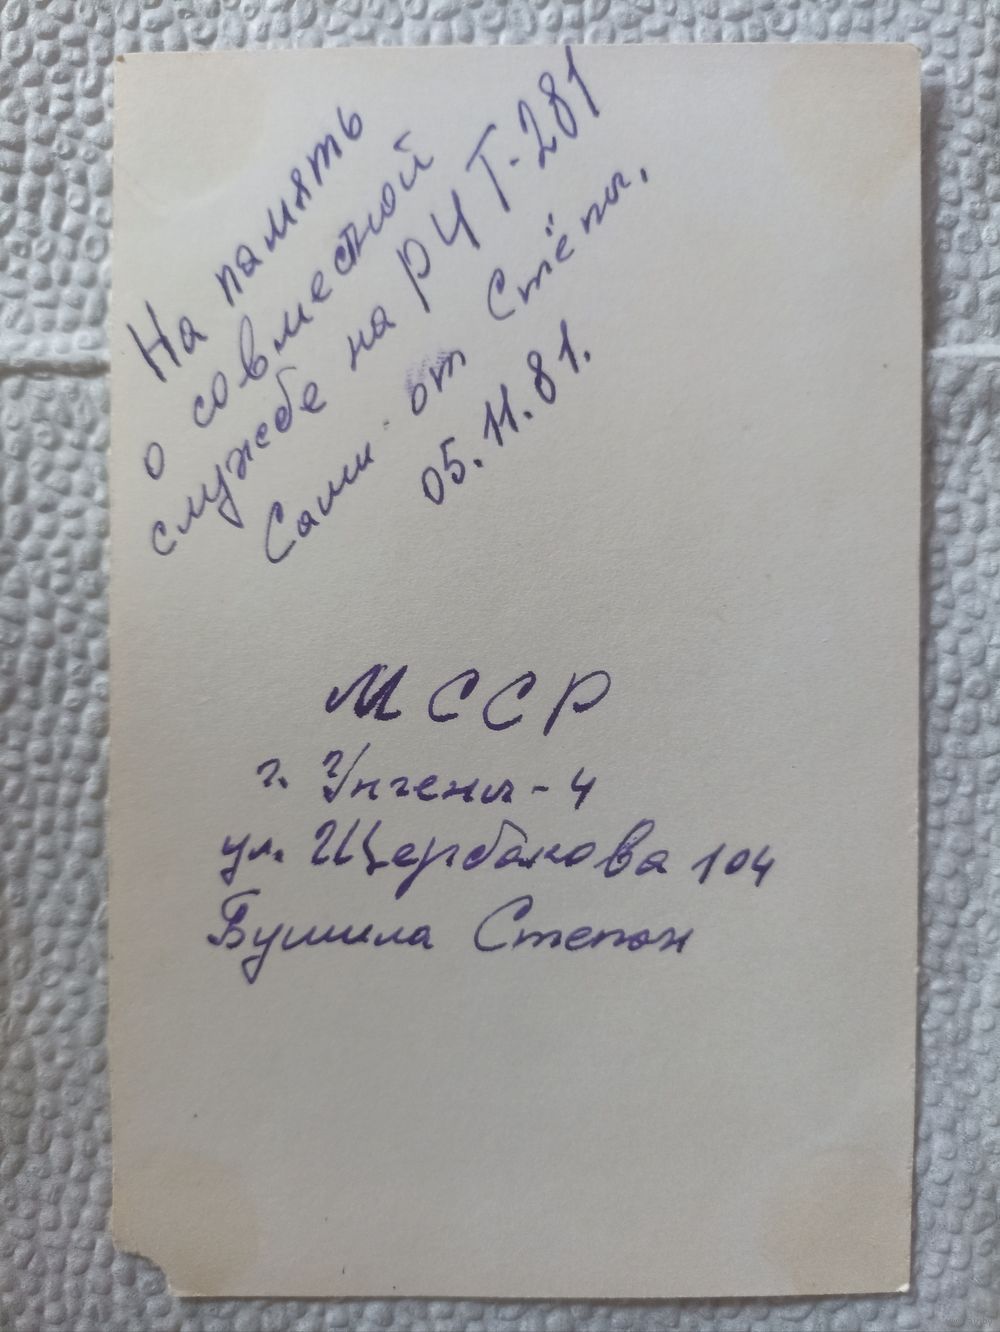 На память
о совместной
службе на РЧТ-281
Саши от Стёпы.
05.11.81.
МССР
г. Унгены-4
ул. Щербакова 104
Бушила Степан